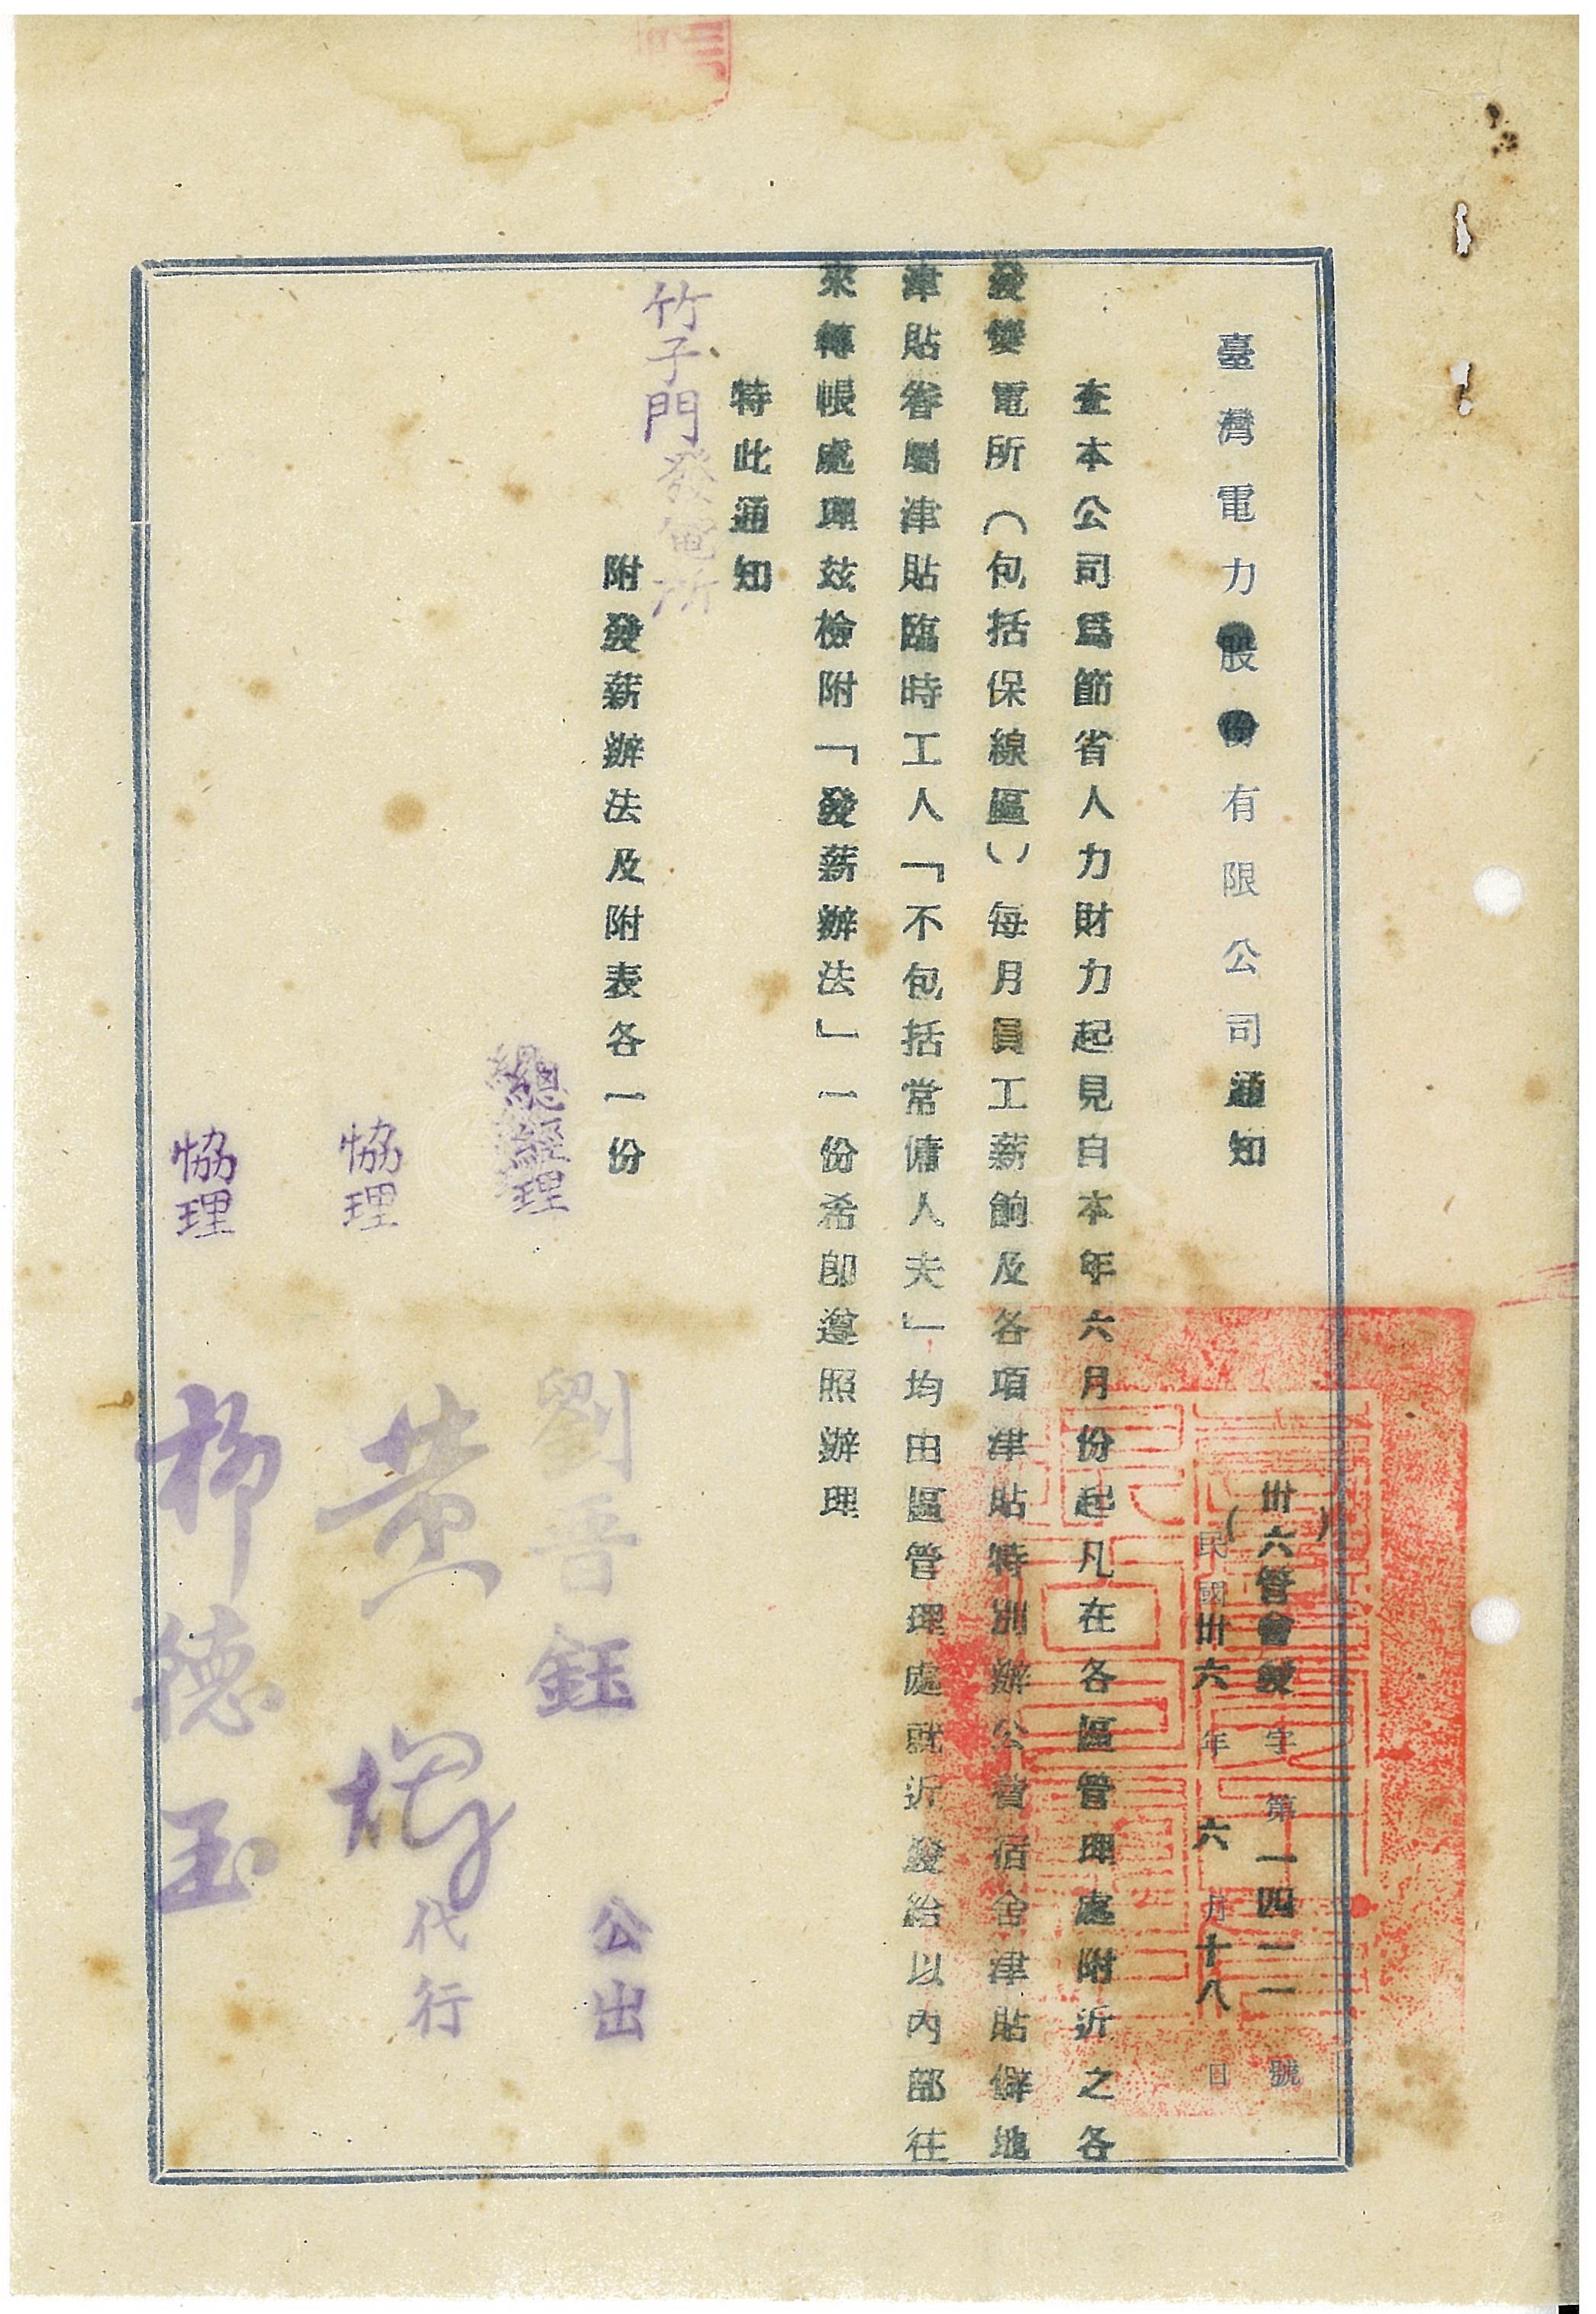 臺灣電力股份有限公司通知
(卅六)管會發字第一四一一號
民國卅六年六月十八日
查本公司爲節省人力財力起見自本年六月份起凡在各區管理處附近之各
發變電所(包括保線區)每月員工薪餉及各項津貼特別辦公費宿舍津貼僻地
津貼眷屬津貼臨時工人「不包括常傭人夫」均由區管理處就近發給以內部往
來轉帳處理玆檢附「發薪辦法」一份希卽遵照辦理
特此通知
竹子門發電所
附發薪辦法及附表各一份
總經理 劉晉鈺 公出
協理 黃煇 代行
協理 柳德玉